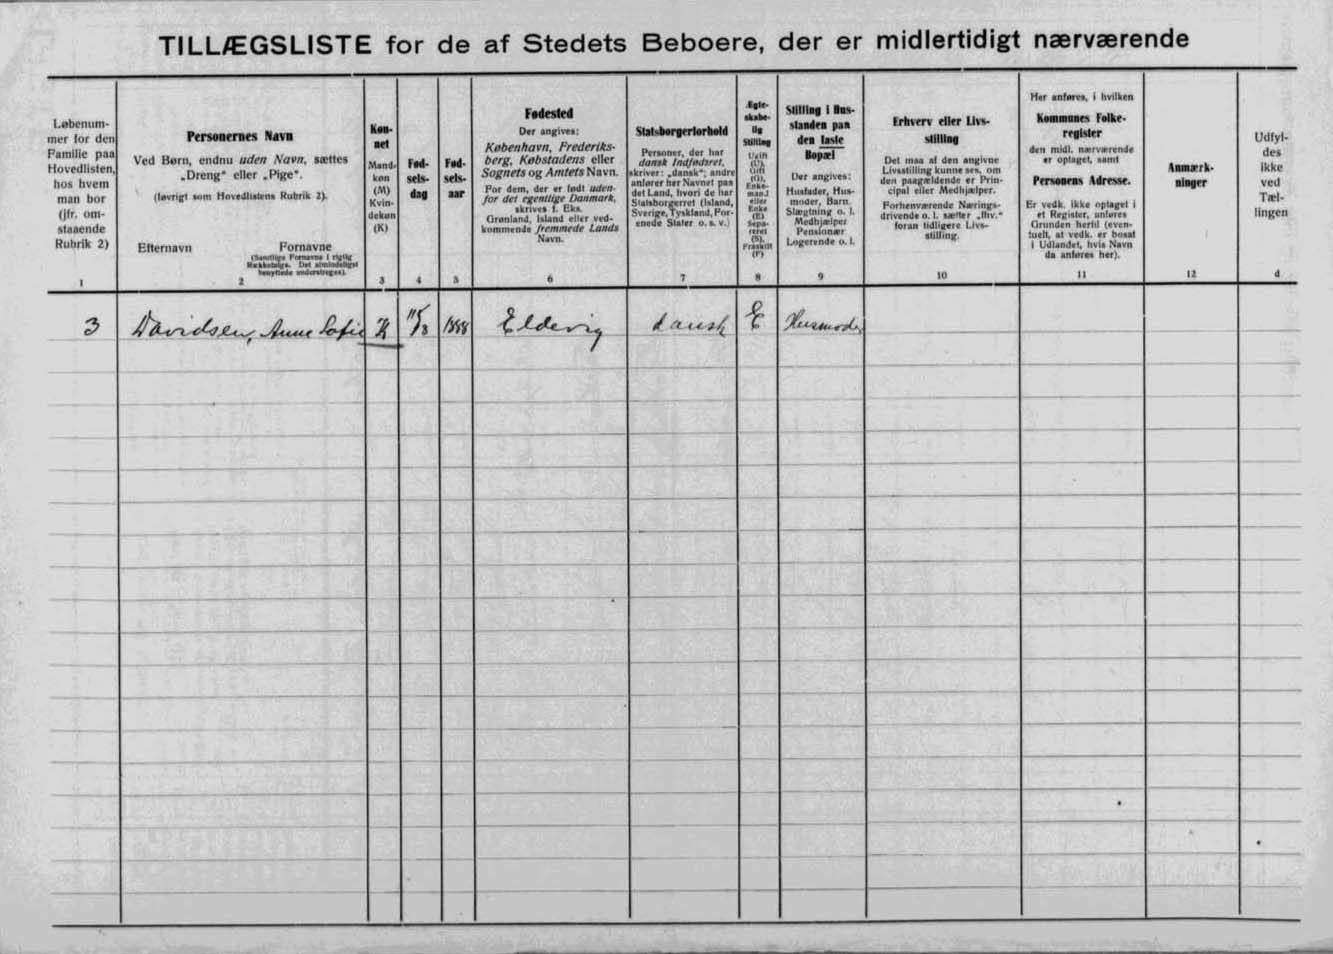 TILLÆGSLISTE for de af Stedets Beboere, der er midlertidigt nærværende
Løbenum-
mer for den
Familie paa
Hovedlisten,
hos hvem
man bor
(jfr. om-
staaende
Rubrik 2)
1
Personernes Navn
Ved Børn, endnu uden Navn, sættes
„Dreng“ eller „Pige“.
(Iøvrigt som Hovedlistens Rubrik 2).
Efternavn
Fornavne
(Samtlige Fornavne i rigtig
Rækkefølge. Det almindeligst
benyttede understreges).
2
Køn-
net
Mand-
køn
(M)
Kvin-
dekøn
(K)
3
Fød-
sels-
dag
4
Fød-
sels-
aar
5
Fødested
Der angives:
København, Frederiks-
berg, Købstadens eller
Sognets og Amtets Navn.
For dem, der er født uden-
for det egentlige Danmark,
skrives f. Eks.
Grønland, Island eller ved-
kommende fremmede Lands
Navn.
6
Statsborgerforhold
Personer, der har
dansk Indfødsret,
skriver: „dansk“; andre
anfører her Navnet paa
det Land, hvori de har
Statsborgerret (Island,
Sverige, Tyskland, For-
enede Stater o. s. v.)
7
Ægte-
skabe-
lig
Stilling
Ugift
(U),
Gift
(G),
Enke-
mand
eller
Enke
(E)
Sepa-
reret
(S),
Fraskilt
(F)
8
Stilling i Hus-
standen paa
den faste
Bopæl
Der angives:
Husfader, Hus-
moder, Barn,
Slægtning o. l.
Medhjælper
Pensionær
Logerende o. l.
9
Erhverv eller Livs-
stilling
Det maa af den angivne
Livsstilling kunne ses, om
den paagældende er Prin-
cipal eller Medhjælper.
Forhenværende Nærings-
drivende o. l. sætter „fhv.“
foran tidligere Livs-
stilling.
10
Her anføres, i hvilken
Kommunes Folke-
register
den midl. nærværende
er optaget, samt
Personens Adresse.
Er vedk. ikke optaget i
et Register, anføres
Grunden hertil (even-
tuelt, at vedk. er bosat
i Udlandet, hvis Navn
da anføres her).
11
Anmærk-
ninger
12
Udfyl-
des
ikke
ved
Tæl-
lingen
d
3 Davidsen, Anne Sofie K 11/8 1888 Eldevig dansk E Husmoder